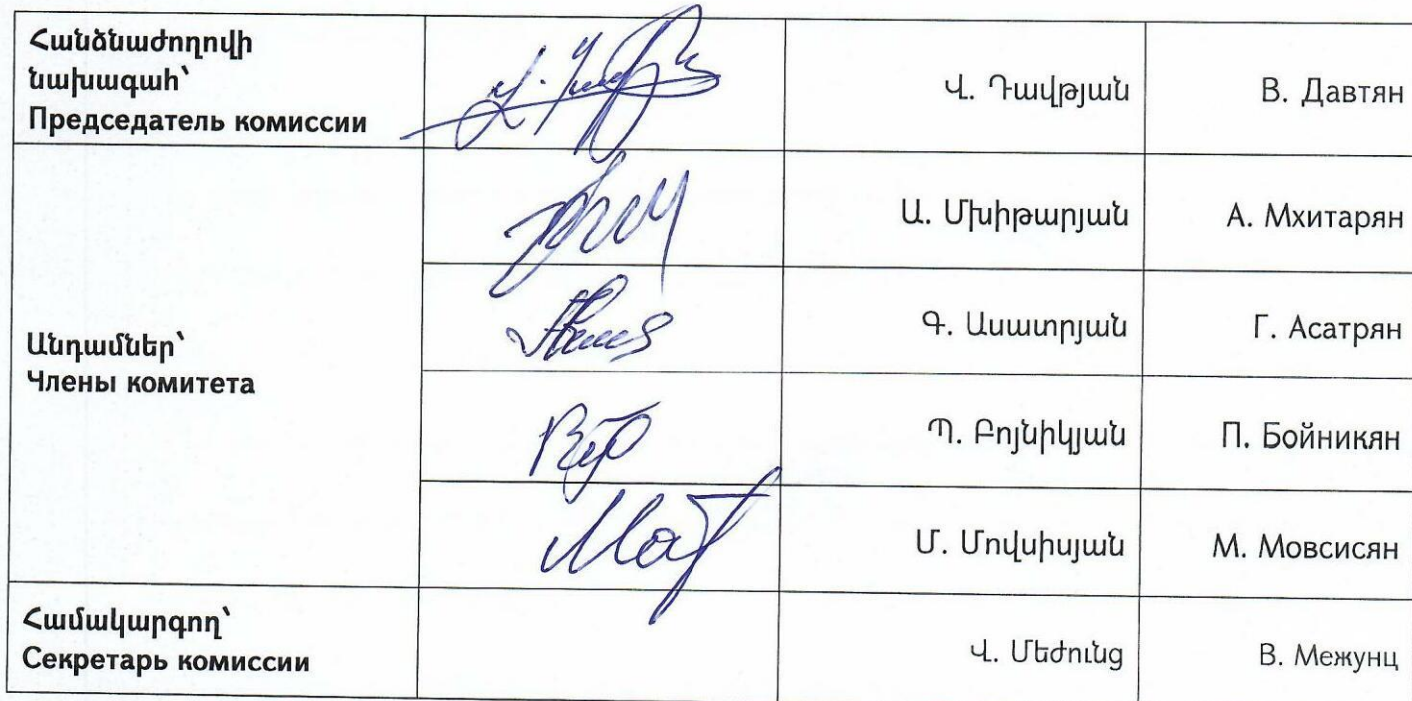 Հանձնաժողովի
նախագահ՝
Председатель комиссии
Վ. Դավթյան
В. Давтян
Ա. Մխիթարյան
А. Мхитарян
Անդամներ՝
Члены комитета
Գ. Ասատրյան
Г. Асатрян
Պ. Բոյնիկյան
П. Бойникян
Մ. Մովսիսյան
М. Мовсисян
Համակարգող՝
Секретарь комиссии
Վ. Մեժունց
В. Межунц